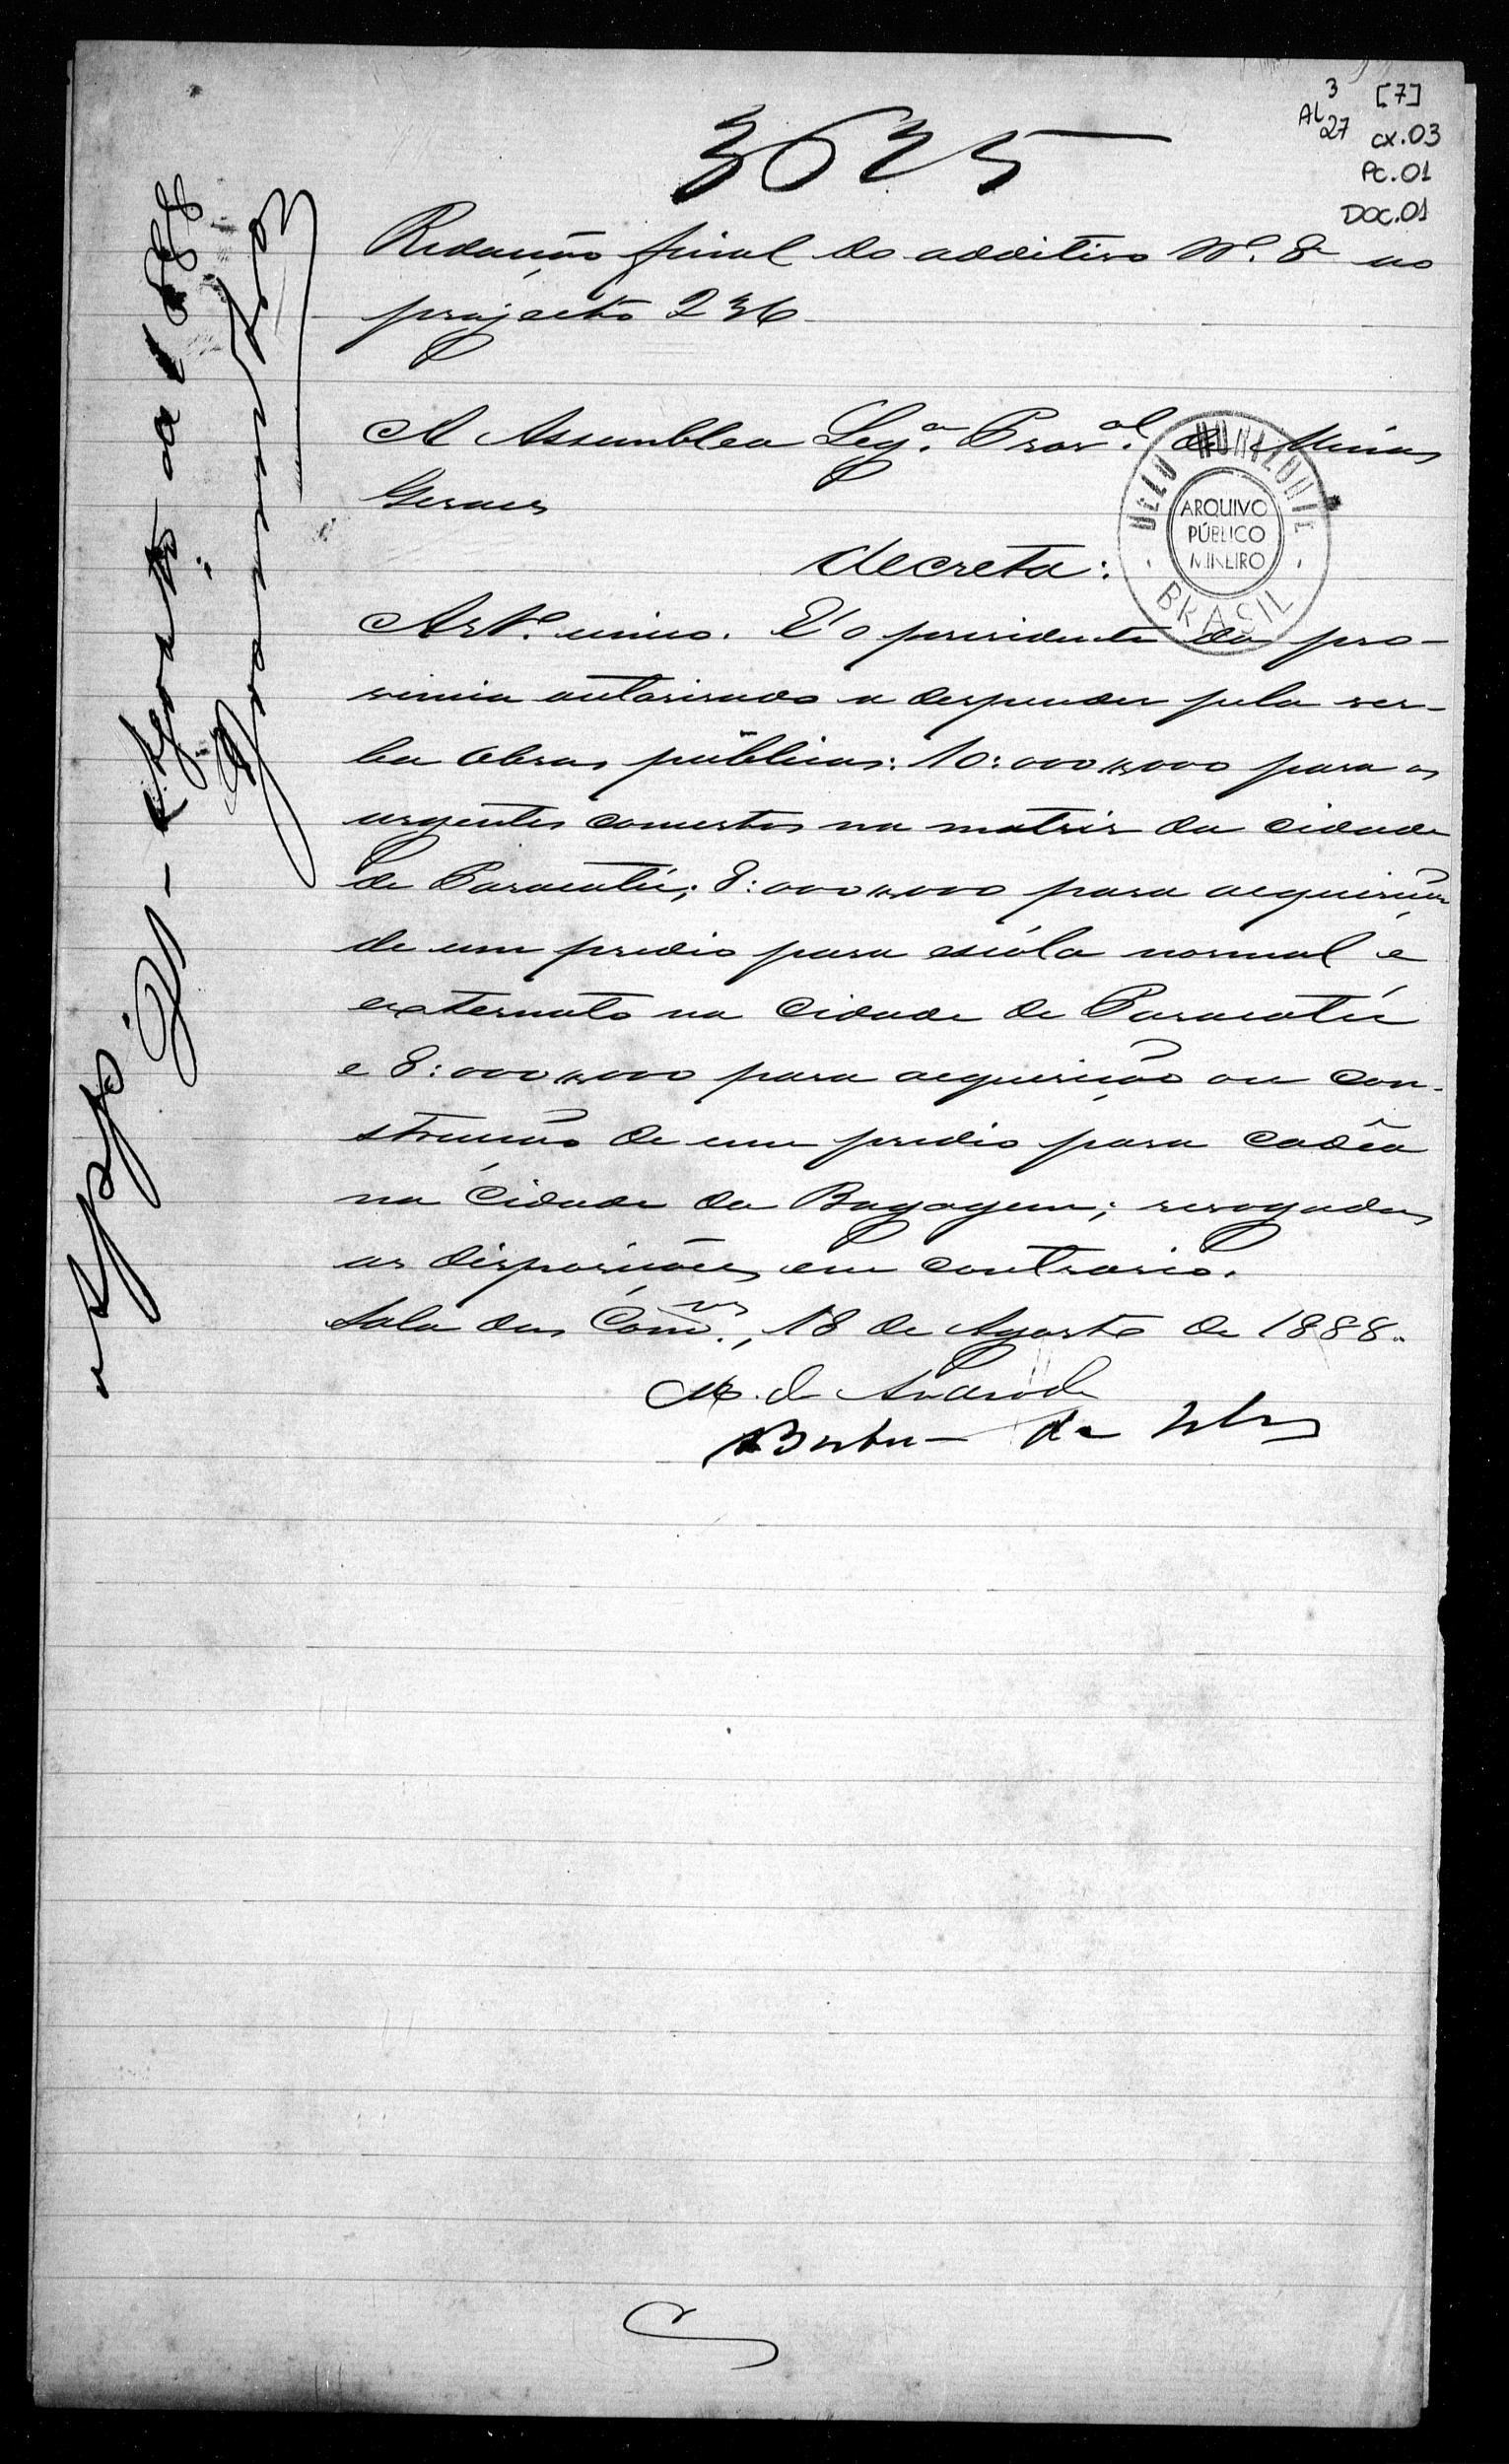 3 [7]
AL 27 cx.03
Pc.01
DOC.01
3625
Redacção final do additivo Nº. 8 ao
projecto 236
A Assemblea Legª. Provᵃˡ. de Minas
Geraes
decreta:
Artº. unico. E' o presidente da pro-
vincia autorisado a despender pela ver-
ba Obras públicas: 10:000$000 para os
urgentes concertos na matriz da cidade
de Paracatú; 8:000$000 para acquisição
de um predio para escóla normal e
externato na cidade de Paracatú
e 8:000$000 para acquisição ou con-
strucção de um predio para cadêa
na cidade da Bagagem; revogadas
as disposições em contrario.
Sala das Comᵉˢ., 18 de Agosto de 1888.
M. de Andrade
Barbosa da Silva
BELO HORIZONTE
ARQUIVO
PÚBLICO
MINEIRO
BRASIL
Agosto